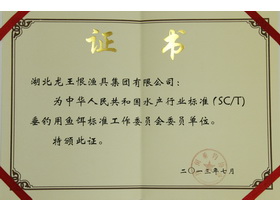 证书
湖北龙王恨渔具集团有限公司：
为中华人民共和国水产行业标准（SC/T）
垂钓用鱼饵标准工作委员会委员单位。
特颁此证。
二〇一三年七月